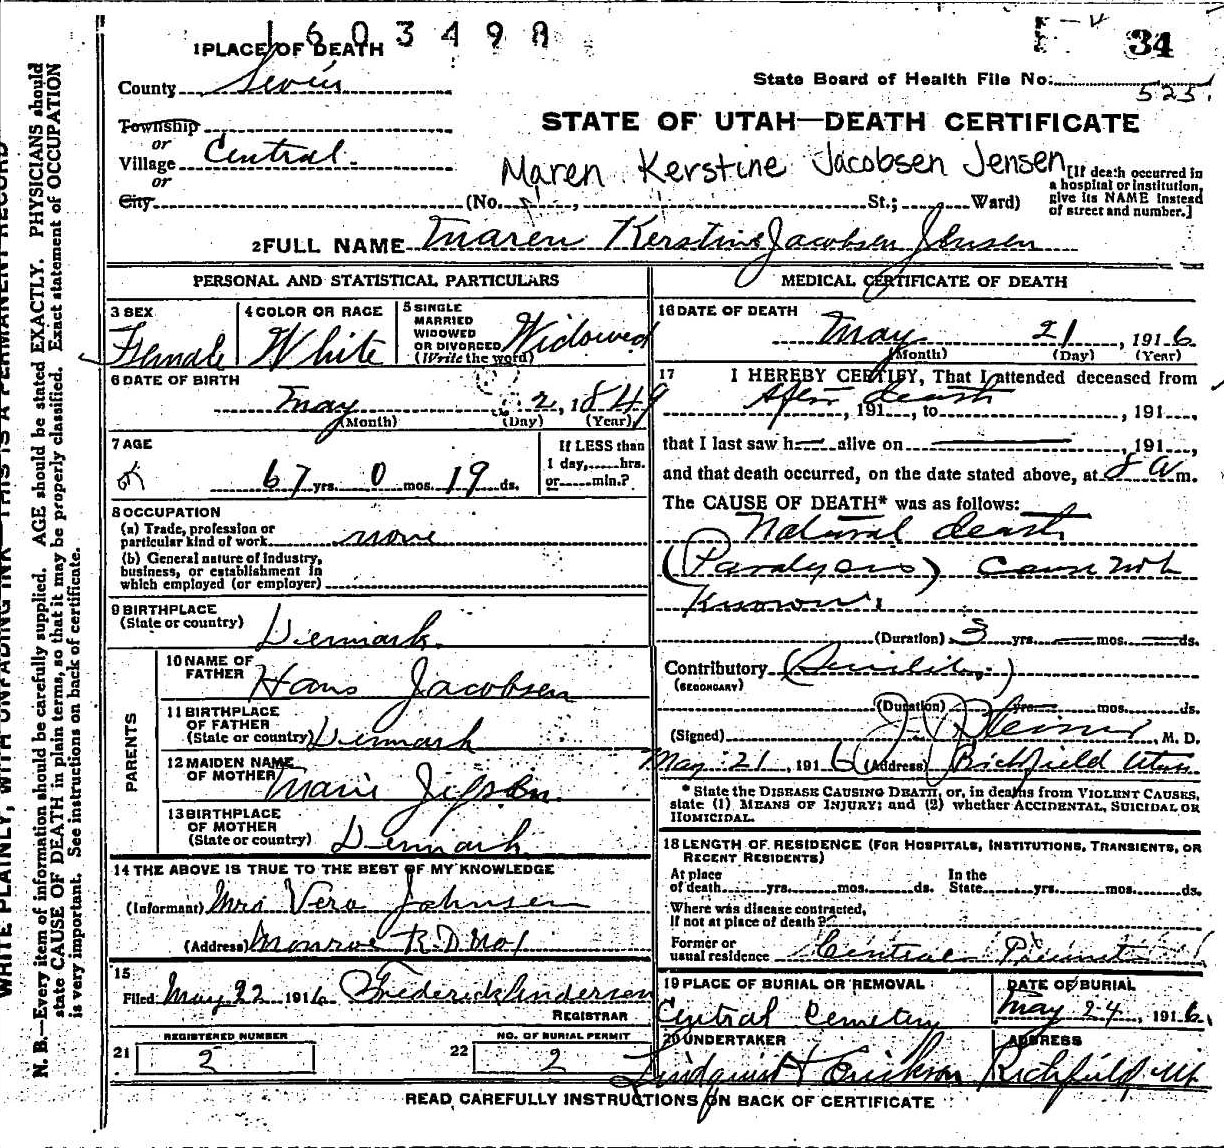 1603498
34
1 PLACE OF DEATH
County Sevier
State Board of Health File No. 525.
Township
or
STATE OF UTAH—DEATH CERTIFICATE
Village Central.
or
Maren Kerstine Jacobsen Jensen
City (No. , St.; Ward)
[If death occurred in a hospital or institution, give its NAME instead of street and number.]
2 FULL NAME Maren Kerstine Jacobsen Jensen
PERSONAL AND STATISTICAL PARTICULARS
3 SEX
Female
4 COLOR OR RACE
White
5 SINGLE
MARRIED
WIDOWED
OR DIVORCED
(Write the word)
Widowed
6 DATE OF BIRTH
May 2, 1849
(Month) (Day) (Year)
7 AGE
67 yrs. 0 mos. 19 ds.
If LESS than
1 day, hrs.
or min.?
8 OCCUPATION
(a) Trade, profession or
particular kind of work none
(b) General nature of industry,
business, or establishment in
which employed (or employer)
9 BIRTHPLACE
(State or country)
Denmark.
PARENTS
10 NAME OF
FATHER
Hans Jacobsen
11 BIRTHPLACE
OF FATHER
(State or country) Denmark
12 MAIDEN NAME
OF MOTHER
Marie Jepsen.
13 BIRTHPLACE
OF MOTHER
(State or country) Denmark
14 THE ABOVE IS TRUE TO THE BEST OF MY KNOWLEDGE
(Informant) Mrs Vera Johnsen
(Address) Monroe R.D No 1
15
Filed May 22 1916 Frederick Anderson
REGISTRAR
REGISTERED NUMBER
21 2
NO. OF BURIAL PERMIT
22 2
MEDICAL CERTIFICATE OF DEATH
16 DATE OF DEATH
May 21, 1916
(Month) (Day) (Year)
17 I HEREBY CERTIFY, That I attended deceased from
After death, 191 , to , 191 ,
that I last saw h— alive on , 191 ,
and that death occurred, on the date stated above, at 8 A m.
The CAUSE OF DEATH* was as follows:
Natural death
(Paralysis) Cause not
Known.
(Duration) 3 yrs. mos. ds.
Contributory (Senility)
(SECONDARY)
(Duration) yrs. mos. ds.
(Signed) Steiner, M. D.
May 21, 1916 (Address) Richfield Utah
* State the DISEASE CAUSING DEATH, or, in deaths from VIOLENT CAUSES,
state (1) MEANS OF INJURY; and (2) whether ACCIDENTAL, SUICIDAL OR
HOMICIDAL.
18 LENGTH OF RESIDENCE (FOR HOSPITALS, INSTITUTIONS, TRANSIENTS, OR
RECENT RESIDENTS)
At place
of death yrs. mos. ds.
In the
State yrs. mos. ds.
Where was disease contracted,
If not at place of death?
Former or
usual residence Central Precinct
19 PLACE OF BURIAL OR REMOVAL
Central Cemetery
DATE OF BURIAL
May 24, 1916.
20 UNDERTAKER
Lindquist & Erickson
ADDRESS
Richfield Ut.
READ CAREFULLY INSTRUCTIONS ON BACK OF CERTIFICATE
WRITE PLAINLY, WITH UNFADING INK—THIS IS A PERMANENT RECORD
N. B.—Every item of information should be carefully supplied. AGE should be stated EXACTLY. PHYSICIANS should
state CAUSE OF DEATH in plain terms, so that it may be properly classified. Exact statement of OCCUPATION
is very important. See instructions on back of certificate.